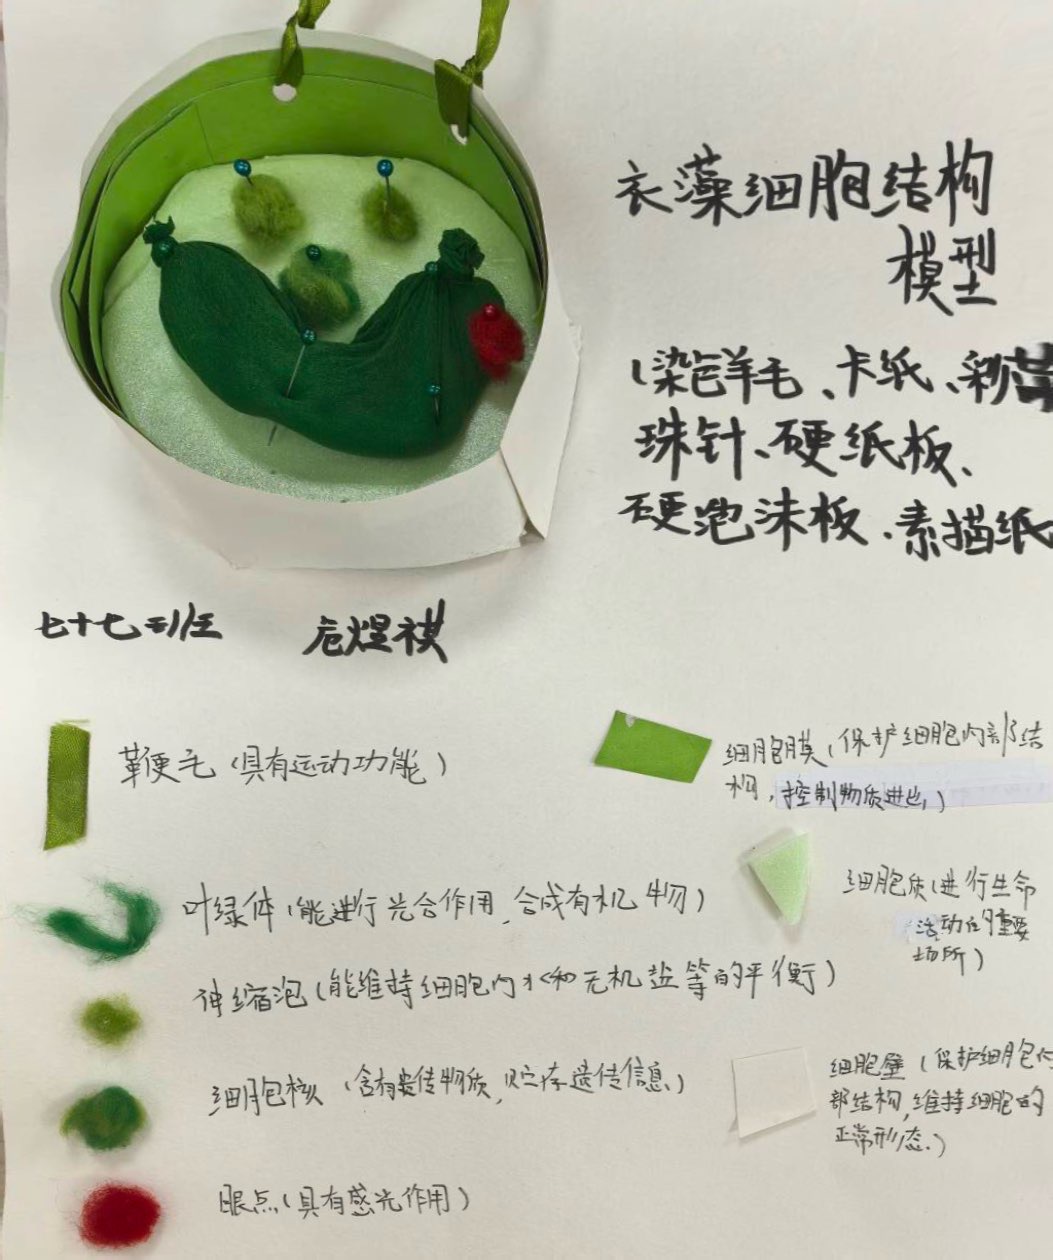 衣藻细胞结构
模型
(染色羊毛、卡纸、彩
珠针、硬纸板、
硬泡沫板、素描纸
七十七班 危煜祺
鞭毛(具有运动功能)
细胞膜(保护细胞内部结
构,控制物质进出)
叶绿体(能进行光合作用,合成有机物)
细胞质(进行生命
活动的重要
场所)
伸缩泡(能维持细胞内水和无机盐等的平衡)
细胞核(含有遗传物质,贮存遗传信息)
细胞壁(保护细胞内
部结构,维持细胞的
正常形态.)
眼点(具有感光作用)